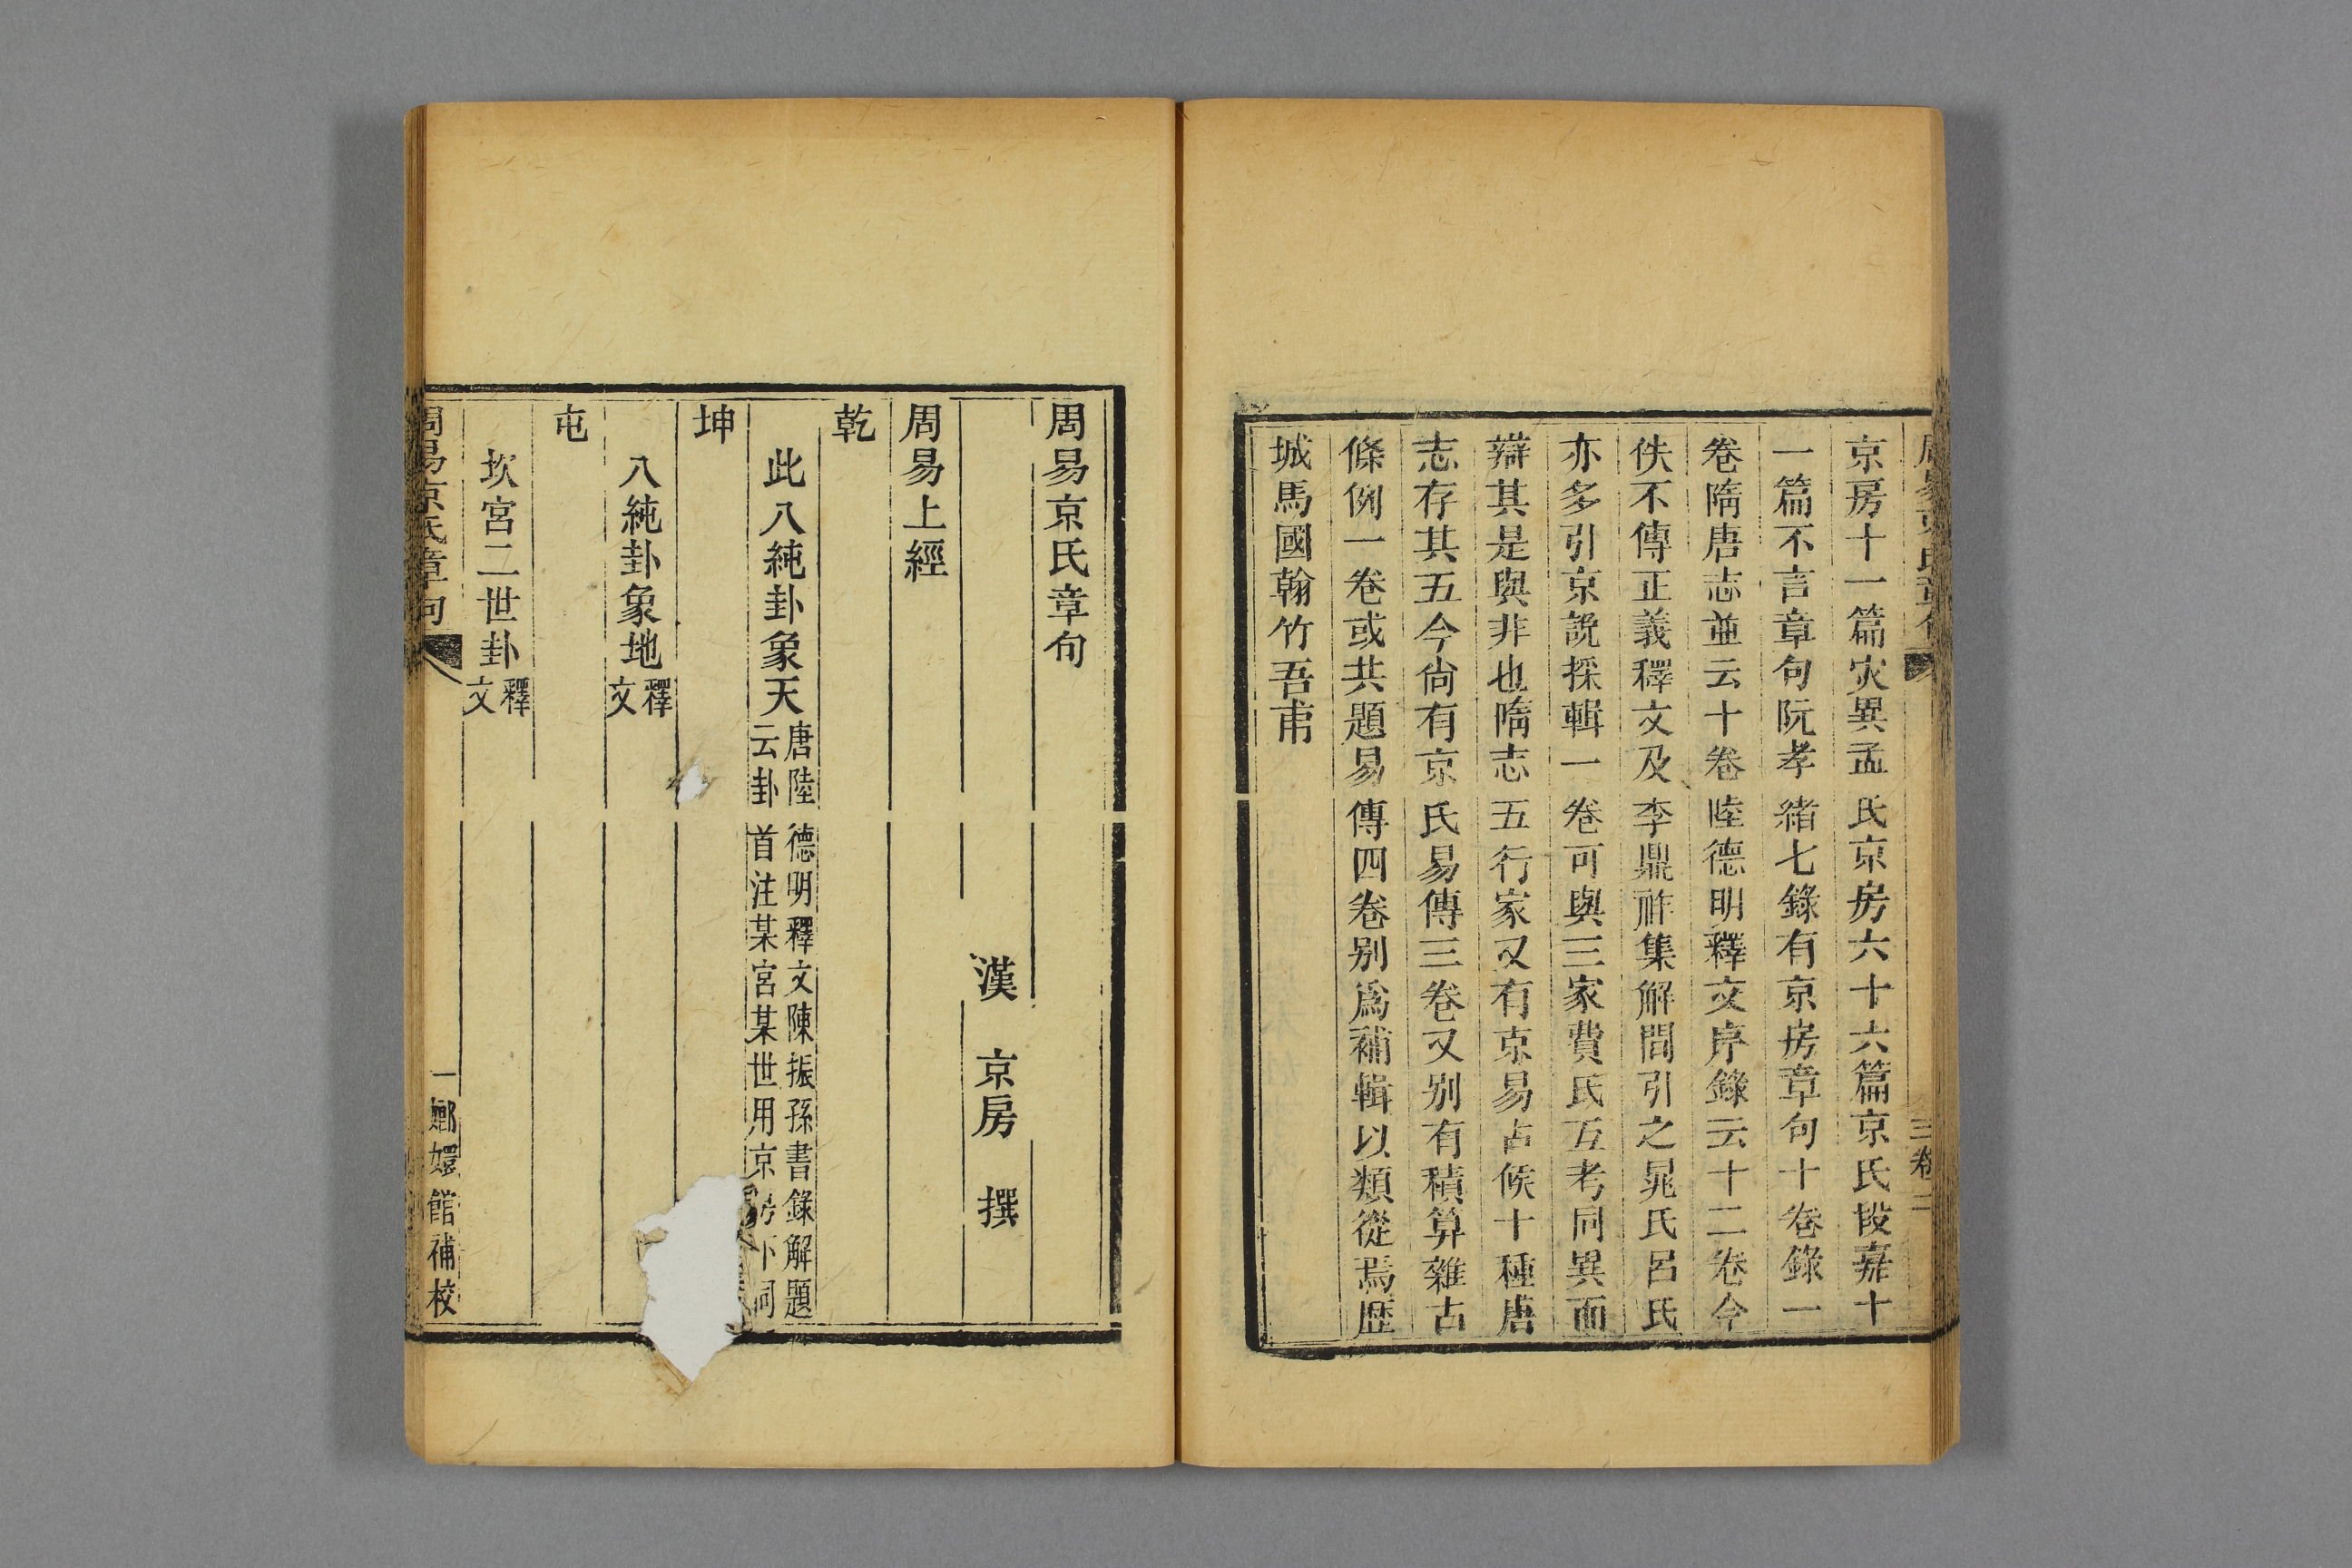 京房十一篇灾異孟氏京房六十六篇京氏段嘉十
一篇不言章句阮孝緒七錄有京房章句十卷錄一
卷隋唐志並云十卷陸德明釋文序錄云十二卷今
佚不傳正義釋文及李鼎祚集解間引之晁氏呂氏
亦多引京說採輯一卷可與三家費氏互考同異而
辯其是與非也隋志五行家又有京易占候十種唐
志存其五今尙有京氏易傳三卷又别有積算雜古
條例一卷或共題易傳四卷别爲補輯以類從焉歷
城馬國翰竹吾甫
周易京氏章句
漢 京房 撰
周易上經
乾
此八純卦象天唐陸德明釋文陳振孫書錄解題
云卦首注某宮某世用京
坤
八純卦象地釋
文
屯
坎宮二世卦釋
文
周易京氏章句 一 嫏嬛館補校